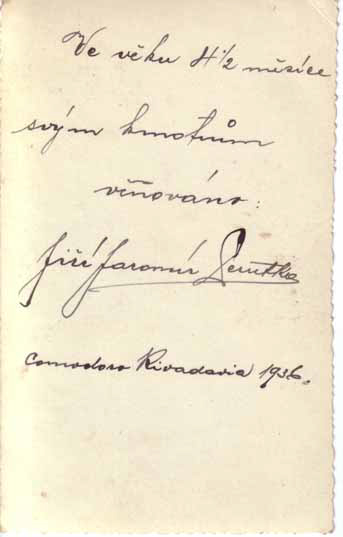 Ve věku 4 1/2 měsíce
svým kmotrům
věnováno:
Jiří Jaromír
Comodoro Rivadavia 1936.